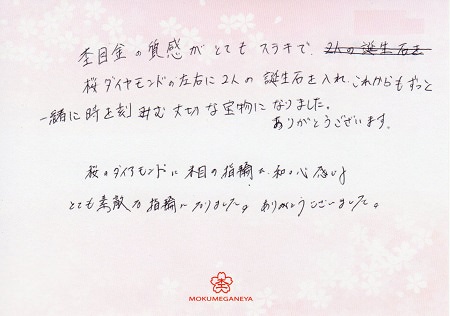 杢目金の質感がとてもステキで、2人の誕生石を
桜ダイヤモンドの左右に2人の誕生石を入れ、これからもずっと
一緒に時を刻み込む大切な宝物になりました。
ありがとうございます。
桜のダイヤモンドに木目の指輪が和の心感じ
とても素敵な指輪になりました。ありがとうございました。
杢
MOKUMEGANEYA